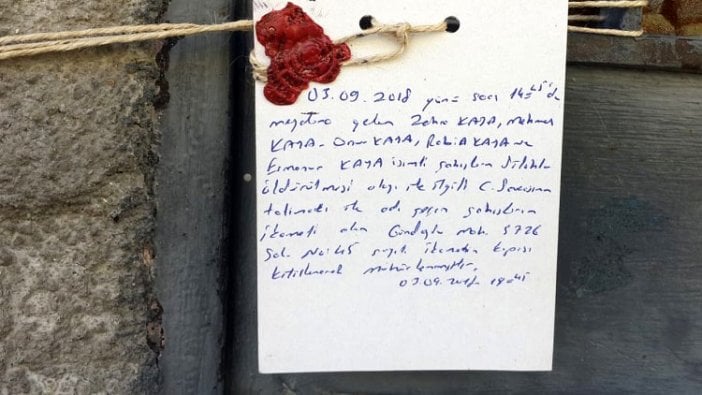 03.09.2018 günü saat 14:45'de
meydana gelen Zehra KAYA, Mehmet
KAYA, Onur KAYA, Rabia KAYA ve
KAYA isimli şahısların silahla
öldürülmesi olayı ile ilgili C. Savcısının
talimatı ile adı geçen şahısların
ikameti olan Mah. 5726
Sok. No: sayılı ikametin kapısı
kilitlenerek mühürlenmiştir.
03.09.2018